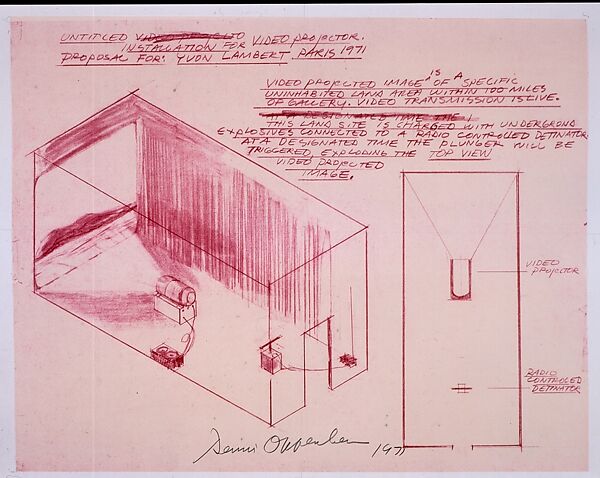 UNTITLED INSTALLATION FOR VIDEO PROJECTOR.
PROPOSAL FOR: YVON LAMBERT. PARIS 1971
VIDEO PROJECTED IMAGE IS OF A SPECIFIC
UNINHABITED LAND AREA WITHIN 100 MILES
OF GALLERY. VIDEO TRANSMISSION IS LIVE.
AT A DESIGNATED TIME THE
THIS LAND SITE IS CHARGED WITH UNDERGROUND
EXPLOSIVES CONNECTED TO A RADIO CONTROLED DETINATOR
AT A DESIGNATED TIME THE PLUNGER WILL BE
TRIGGERED EXPLODING THE
VIDEO PROJECTED
IMAGE.
TOP VIEW
VIDEO
PROJECTOR
RADIO
CONTROLED
DETINATOR
Dennis Oppenheim 1971